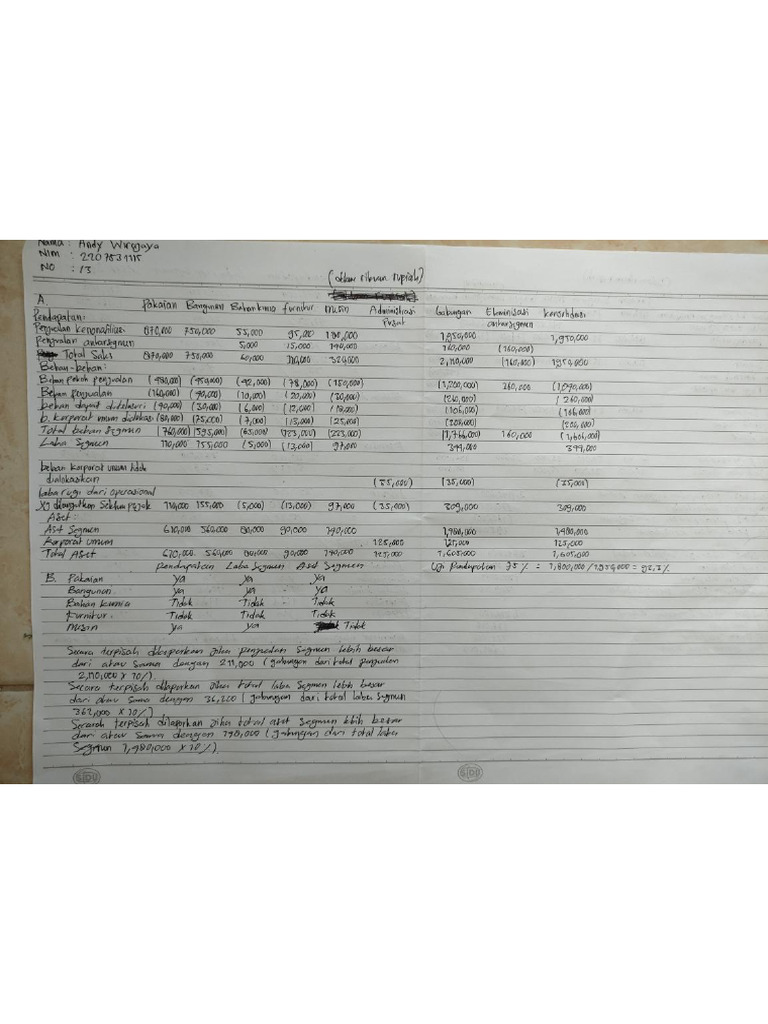 Nama : Andy Wirajaya
Nim : 2207531115
No : 13
(dalam ribuan rupiah)
A.
Pakaian Bangunan Bahan kimia furnitur Mesin Administrasi Pusat Gabungan Eliminasi antarsegmen Konsolidasi
Pendapatan:
870,000 750,000 55,000 95,000 1,950,000 1,950,000
Penjualan antarsegmen 5,000 15,000 140,000 160,000 (160,000)
Total Sales 870,000 750,000 60,000 110,000 320,000 2,110,000 (160,000) 1,950,000
Beban-beban:
Beban pokok penjualan (480,000) (450,000) (42,000) (78,000) (150,000) (1,200,000)
Beban penjualan (160,000) (90,000) (10,000) (20,000) (260,000)
(90,000) (30,000) (6,000) (12,000) (106,000)
b. korporat umum (75,000) (7,000) (13,000) (25,000)
Total beban segmen (760,000) (595,000) (65,000) (123,000) (223,000) (1,766,000) 160,000 (1,606,000)
Laba Segmen 110,000 155,000 (5,000) (13,000) 97,000
beban korporat umum
dialokasikan (35,000) (35,000) (35,000)
Laba rugi dari operasional
sebelum pajak 110,000 155,000 (5,000) (13,000) 97,000 (35,000) 309,000 309,000
Aset :
Aset Segmen 560,000 80,000 90,000 1,480,000 1,480,000
Korporat umum 125,000 125,000 125,000
Total Aset 560,000 80,000 90,000 125,000 1,605,000 1,605,000
pendapatan Laba Segmen Aset Segmen
Uji Pendapatan 75% = 1,800,000 / 1,950,000 = 92,3%
B. Pakaian ya ya ya
Bangunan. ya ya ya
Bahan kimia Tidak Tidak Tidak
Furnitur. Tidak Tidak Tidak
Mesin ya ya Tidak
Secara terpisah dilaporkan jika penjualan Segmen lebih besar
dari atau sama dengan 211,000 (gabungan dari total penjualan
2,110,000 x 10%)
Secara terpisah dilaporkan jika total laba segmen lebih besar
dari atau sama dengan 36,200 (gabungan dari total laba Segmen
362,000 x 10%)
Secarah terpisah dilaporkan jika total aset Segmen lebih besar
dari atau sama dengan 148,000 (gabungan dari total laba
Segmen 1,480,000 x 10%).
SIDU SIDU